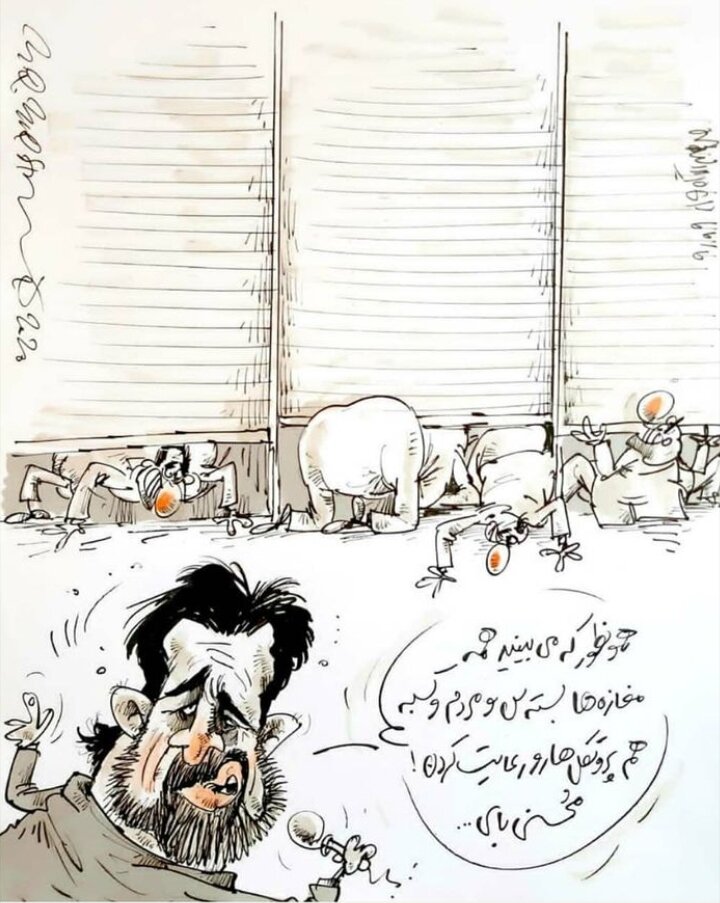 همونطور که می بینید همه
مغازه‌ها بسته س و مردم و کسبه
هم پروتکل‌ها رو رعایت کردن!
محسنی بای...
2020